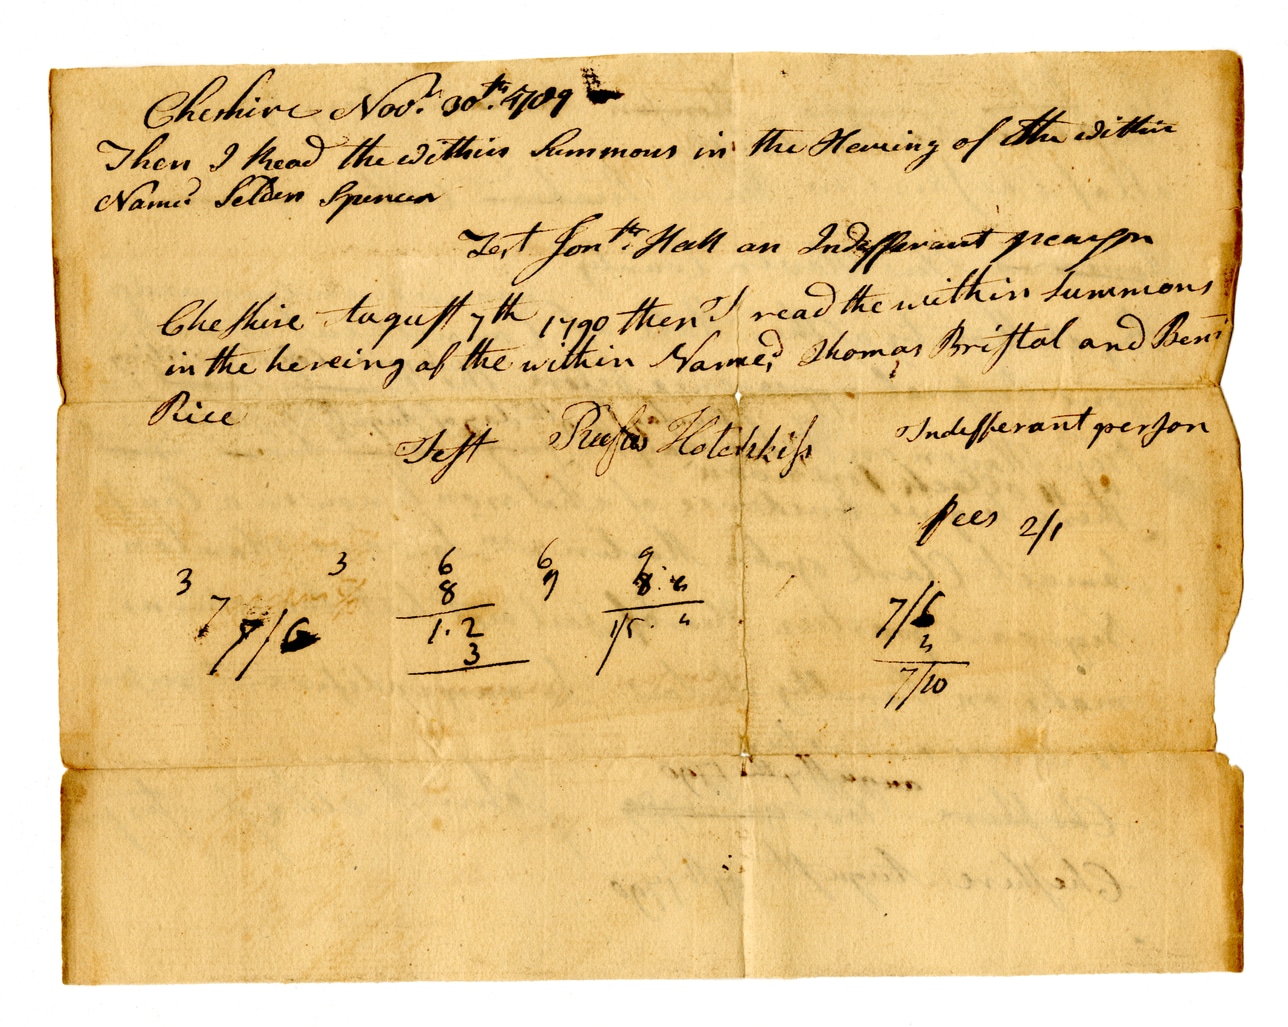 Cheshire Novr. 30th. 1789
Then I Read the within Summons in the Hearing of the within
Named Selden Spencer
Test Jonth. Hall an Indefferant pearson
Cheshire August 7th 1790 then I read the within summons
in the hereing of the within Named Thomas Bristol and Beni
Rice
Test Rufus Hotchkiss Indefferant person
Fees 2/1
3 3 6 6 9
7 7/6 8 9 8. 6 7/6
1.2 15. 4
3 7/10